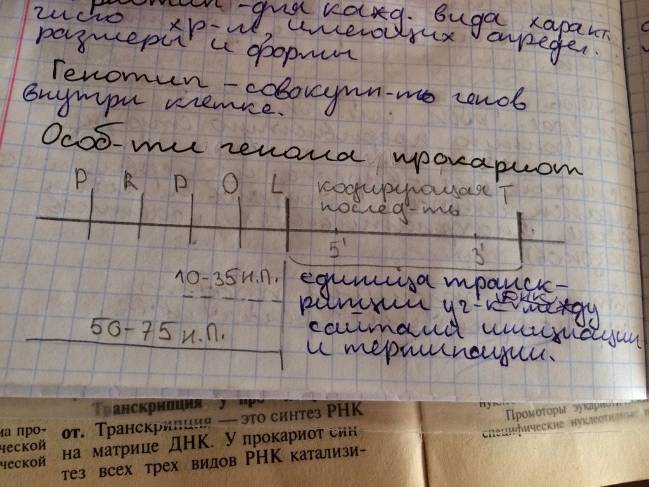 -для кажд. вида характ.
число хр-м, имеющих определ.
размеры и формы
Генотип - совокупн-ть генов
внутри клетке.
Особ-ти генома прокариот
P R P O L кодирующая T
послед-ть
5' 3'
10-35 н.п.
50-75 н.п.
единица транск-
рипции уч-к ДНК между
сайтами инициации
и терминации.
Транскрипция у
от. Транскрипция — это синтез РНК
на матрице ДНК. У прокариот син-
тез всех трех видов РНК катализи-
на про-
ческой
ческой
Промоторы эукариот
специфические нуклеотидные